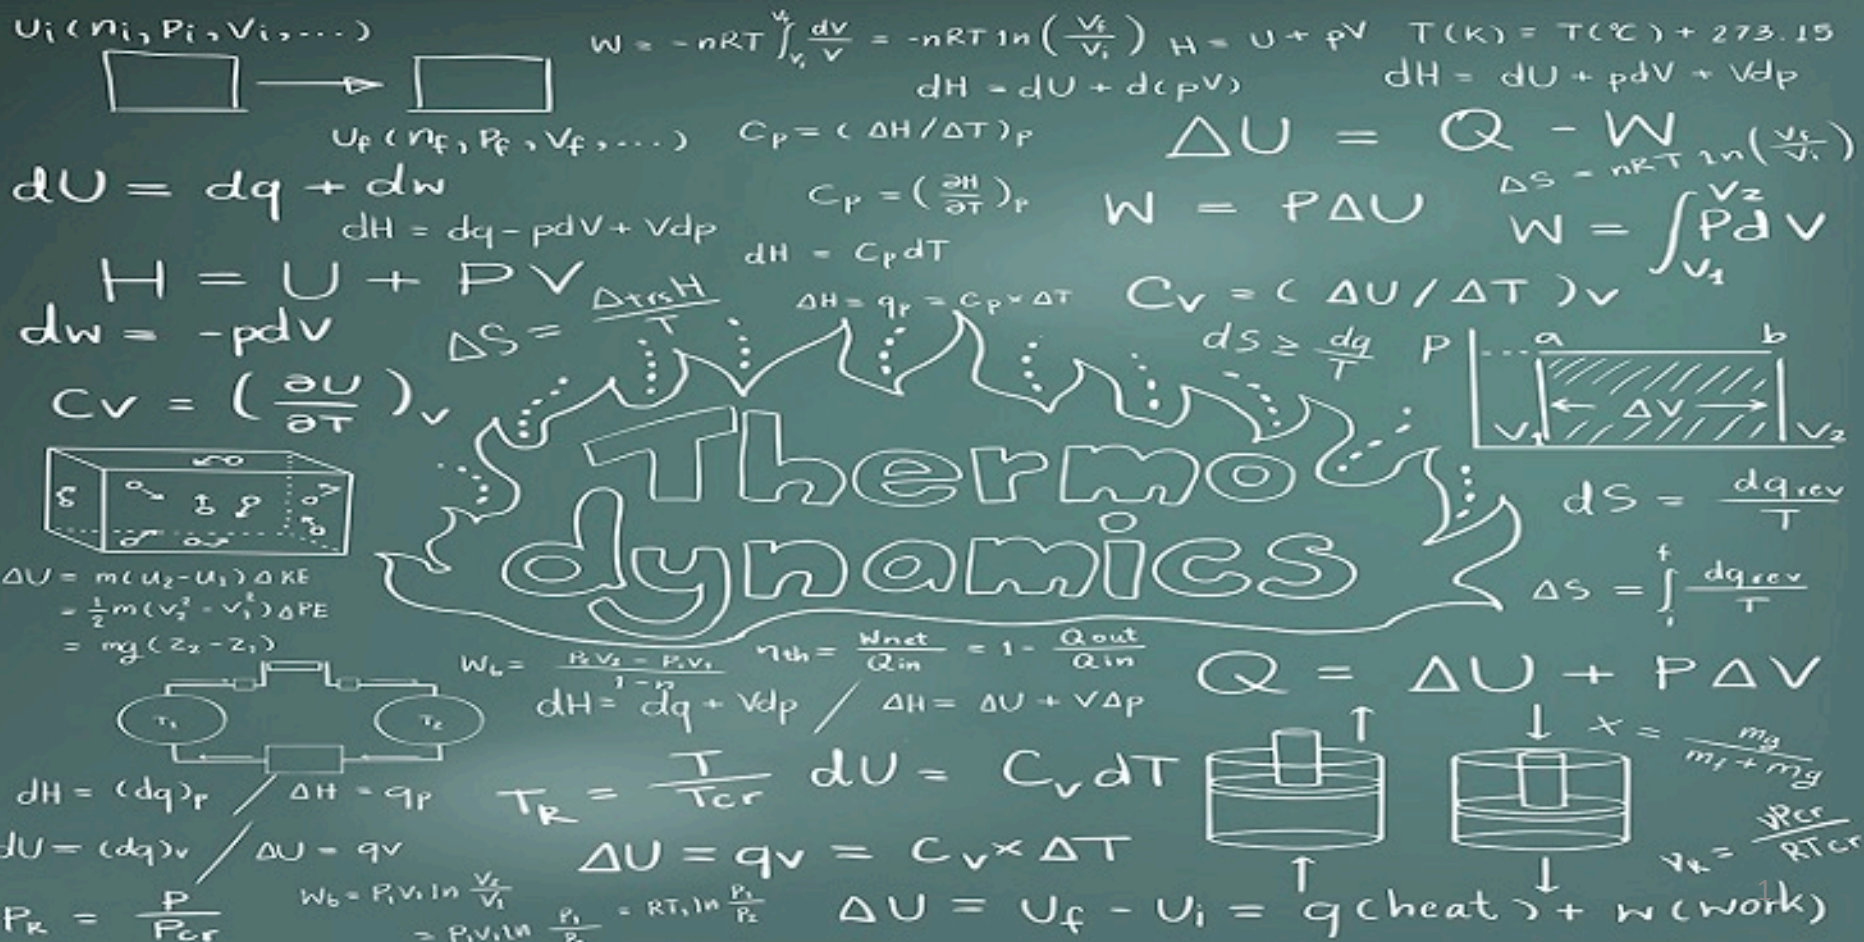 Ui(ni, Pi, Vi, ...)
W = -nRT ∫ᵥᵢ^vf dV/V = -nRT ln(Vf/Vi)
H = U + pV
T(K) = T(°C) + 273.15
dH = dU + d(pV)
dH = dU + pdV + Vdp
Uf(nf, Pf, Vf, ...)
Cp = (ΔH/ΔT)p
ΔU = Q - W
ΔS = nRT ln(Vf/Vi)
dU = dq + dw
Cp = (∂H/∂T)p
W = PΔU
W = ∫V₁^V₂ PdV
dH = dq - pdV + Vdp
dH = CpdT
H = U + PV
ΔS = ΔtrsH/T
ΔH = qp = Cp × ΔT
Cv = (ΔU/ΔT)v
dw = -pdV
dS ≥ dq/T
P a b
V₁ ΔV V₂
Cv = (∂U/∂T)v
Thermo
dynamics
dS = dqrev/T
ΔU = m(u₂-u₁)ΔKE
= ½m(v₂²-v₁²)ΔPE
= mg(z₂-z₁)
ΔS = ∫i^f dqrev/T
Wb = P₂V₂ - P₁V₁/1-n
ηth = Wnet/Qin = 1 - Qout/Qin
Q = ΔU + PΔV
T₁ T₂
dH = dq + Vdp / ΔH = ΔU + VΔp
x = mg/mf + mg
dH = (dq)p / ΔH = qp
TR = T/Tcr
dU = CvdT
dU = (dq)v / ΔU = qv
ΔU = qv = Cv × ΔT
vR = vPcr/RTcr
PR = P/Pcr
Wb = P₁V₁ ln V₂/V₁
= P₁V₁ ln P₁/
= RT₁ ln P₁/P₂
ΔU = Uf - Ui = q(heat) + w(work)
1